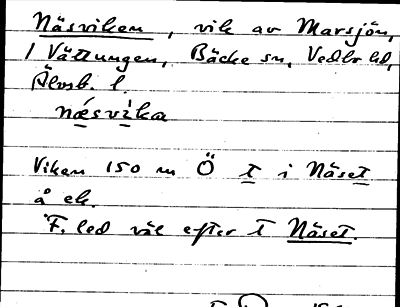 Näsviken, vik av Marsjön,
/ Vättungen, Bäcke sn, Vedbo hd,
Älvsb. l.
næ´svika
Viken 150 m Ö t i Näset
å ek.
F. led väl efter t Näset.